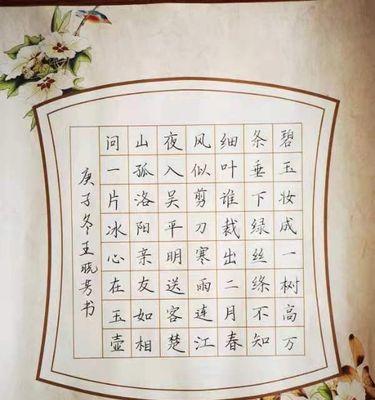 碧玉妆成一树高万
条垂下绿丝绦不知
细叶谁裁出二月春
风似剪刀寒雨连江
夜入吴平明送客楚
山孤洛阳亲友如相
问一片冰心在玉壶
庚子冬王晓芳书